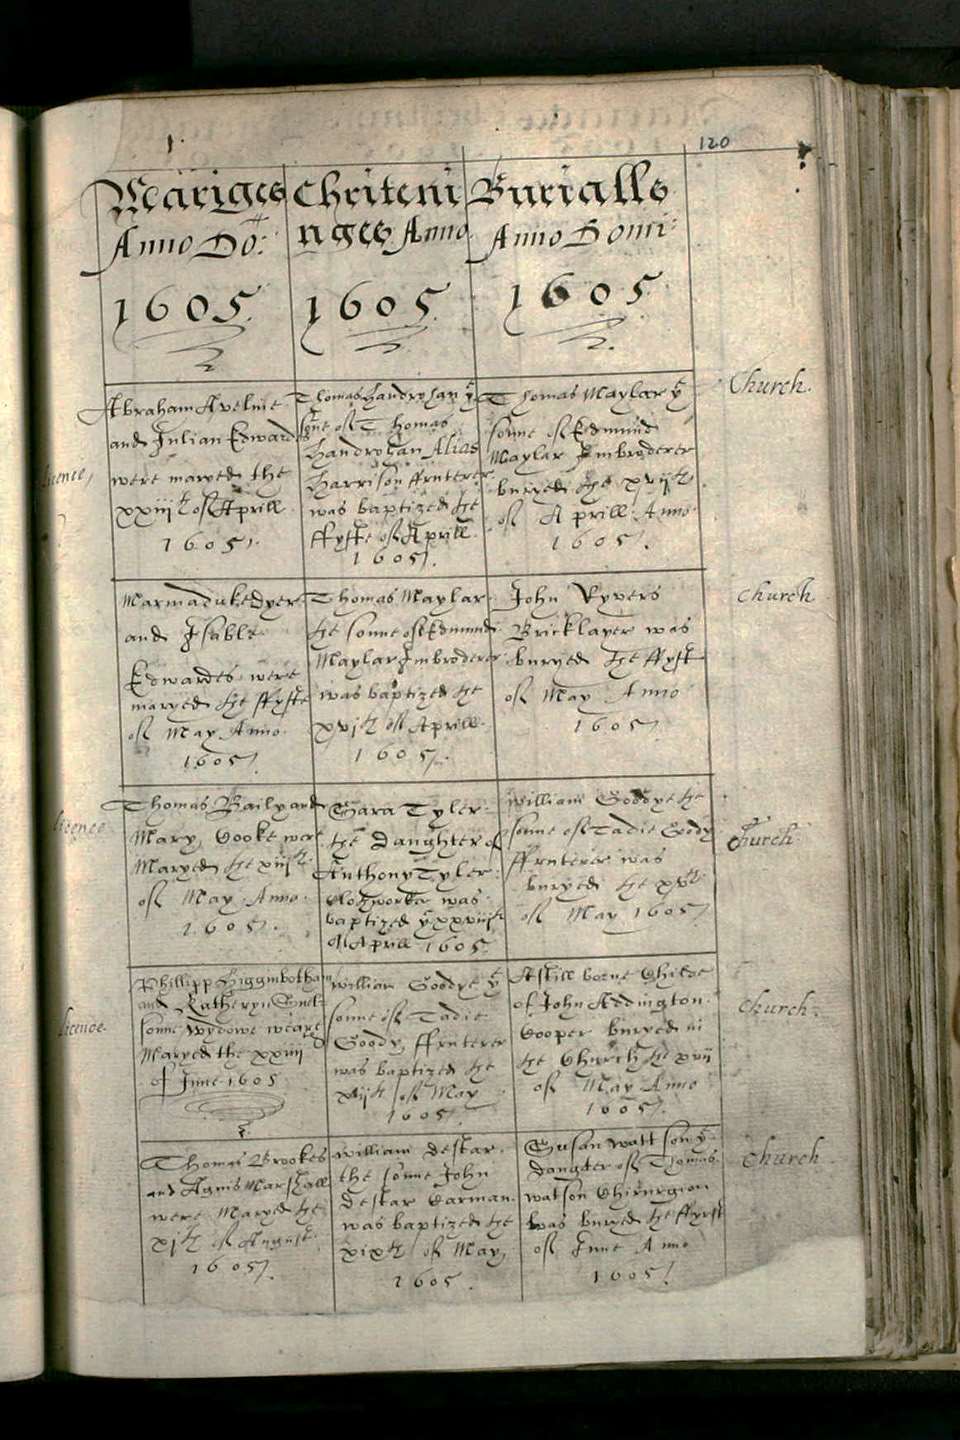 1
120
Mariges
Anno Do:
1605
licence,
Abraham Avelme
and Julian Edwardes
were maryed the
xxiijth of Aprill
1605.
Marmaduke dyer
and Isable
Edwardes were
maryed the ffyrste
of May Anno
1605.
licence
Thomas Baily and
Mary Cooke were
Maryed the xiijth
of May Anno
1605.
licence.
Phillipp Higginbotham
and Katheryn
sonne Wydowe weare
Maryed the xxiiij
of June 1605
Thomas Brookes
and Agnis Marshall
were Maryed the
xjth of August
1605.
Chriteni
nges Anno
1605
Thomas Handrohan ye
sonne of Thomas
Handrohan Alias
Harrison ffruterer
was baptized the
ffyrste of Aprill
1605.
Thomas Maylar
the sonne of Edmund
Maylar Imbroderer
was baptized the
xvjth of Aprill
1605.
Sara Tyler
the daughter of
Anthony Tyler
Clothworker was
baptized ye xxviijth
of Aprill 1605
William Goodye ye
sonne of Tadie
Goody ffruterer
was baptized the
xijth of May
1605.
William destar
the sonne John
destar Carman
was baptized the
xixth of May
1605.
Burialls
Anno Domi:
1605
Thomas Maylar ye
sonne of Edmund
Maylar Imbroderer
buryed the xvijth
of Aprill Anno
1605.
Church.
John Ryvers
Bricklayer was
buryed the ffyrst
of May Anno
1605.
Church
William Goodye the
sonne of Tadie Goody
ffruterer was
buryed the xvth
of May 1605.
Church
A still borne Childe
of John Addington
Cooper buryed in
the Church the xvij
of May Anno
1605.
Church.
Susan Wattson ye
daughter of Thomas
Watson Chirurgion
was buryed the ffyrst
of June Anno
1605.
Church